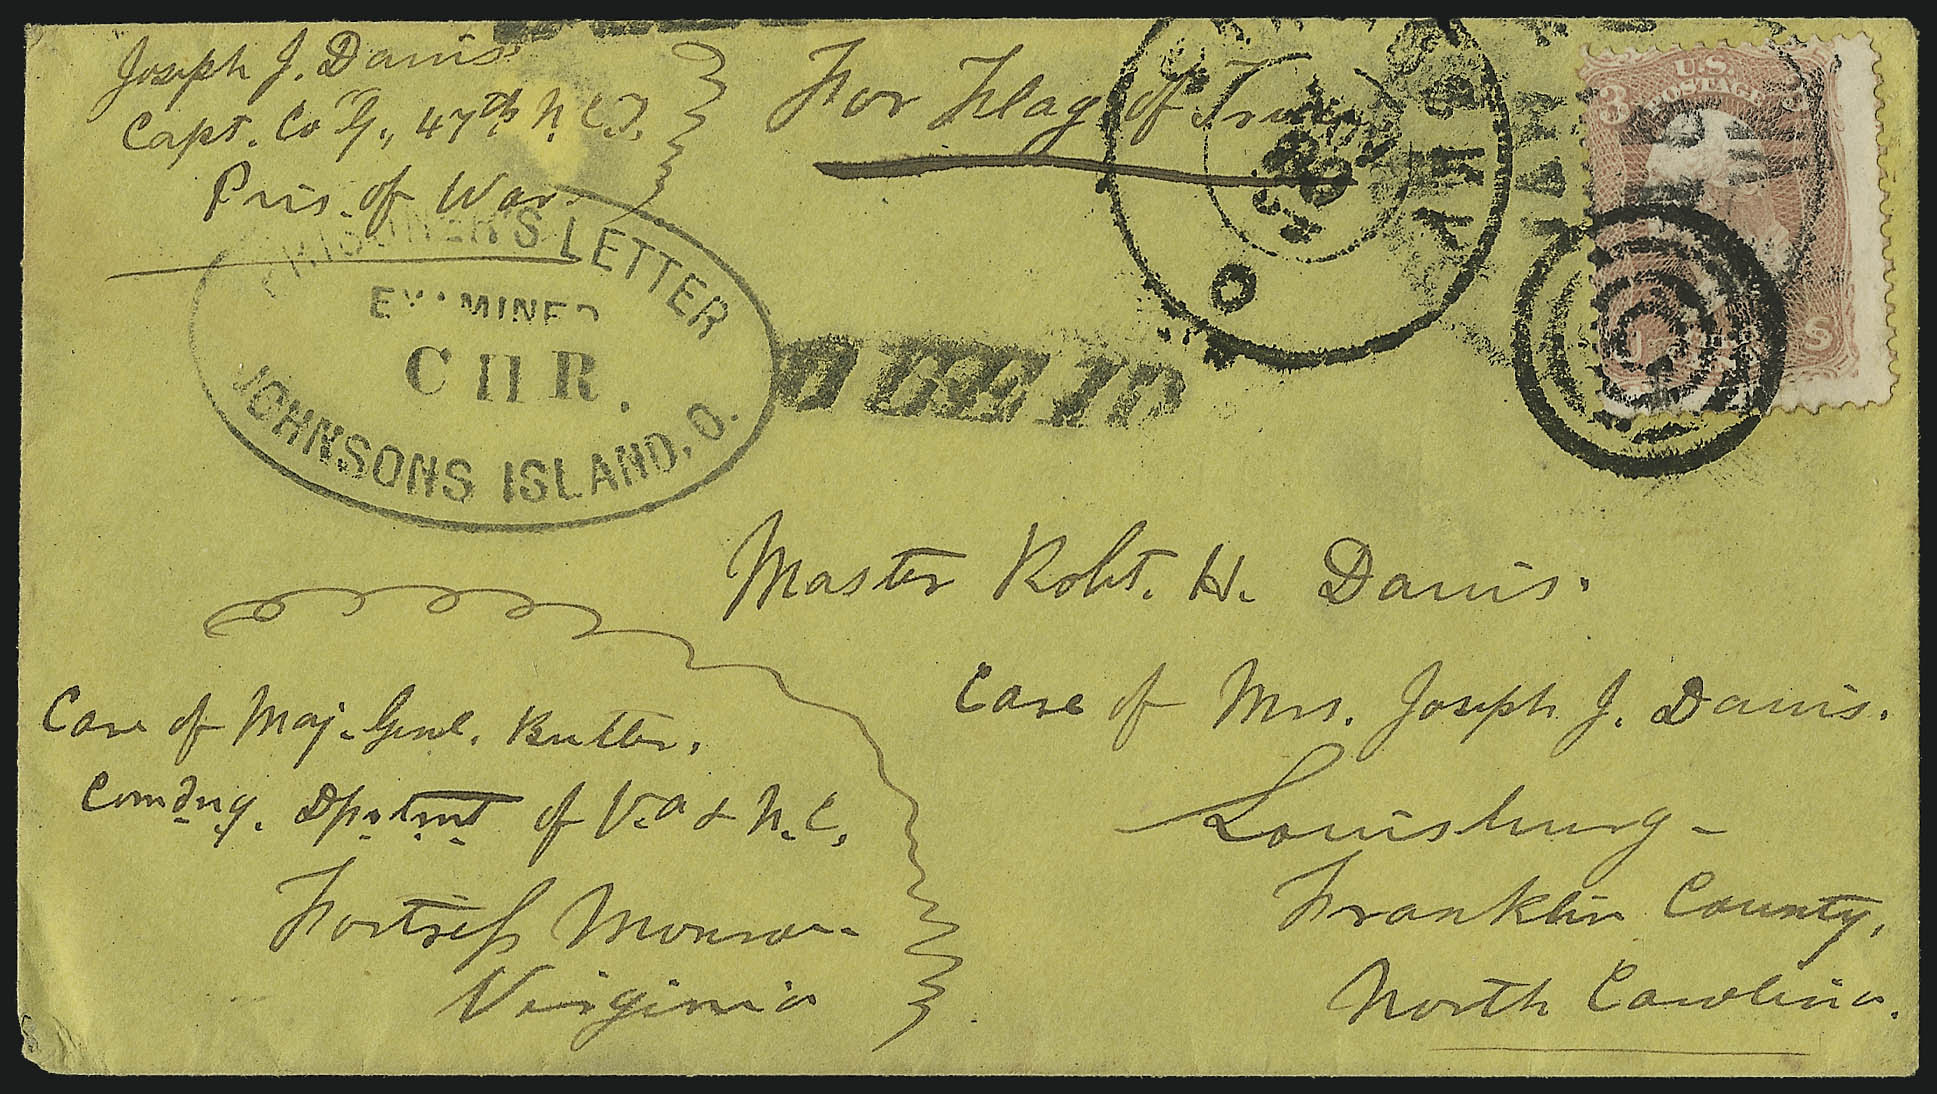 Joseph J. Davis
Capt. Co "G", 47th N.C.T.
Pris. of War.
For Flag of Truce
U.S.
POSTAGE
3
S
O
PRISONER'S LETTER
EXAMINED
C H R.
JOHNSONS ISLAND, O.
Master Robt. H. Davis.
Care of Mrs. Joseph J. Davis.
Louisburg-
Franklin County,
North Carolina.
Care of Maj. Genl. Butler.
Comdng. Dpartmt of Va & N.C.
Fortress Monroe-
Virginia